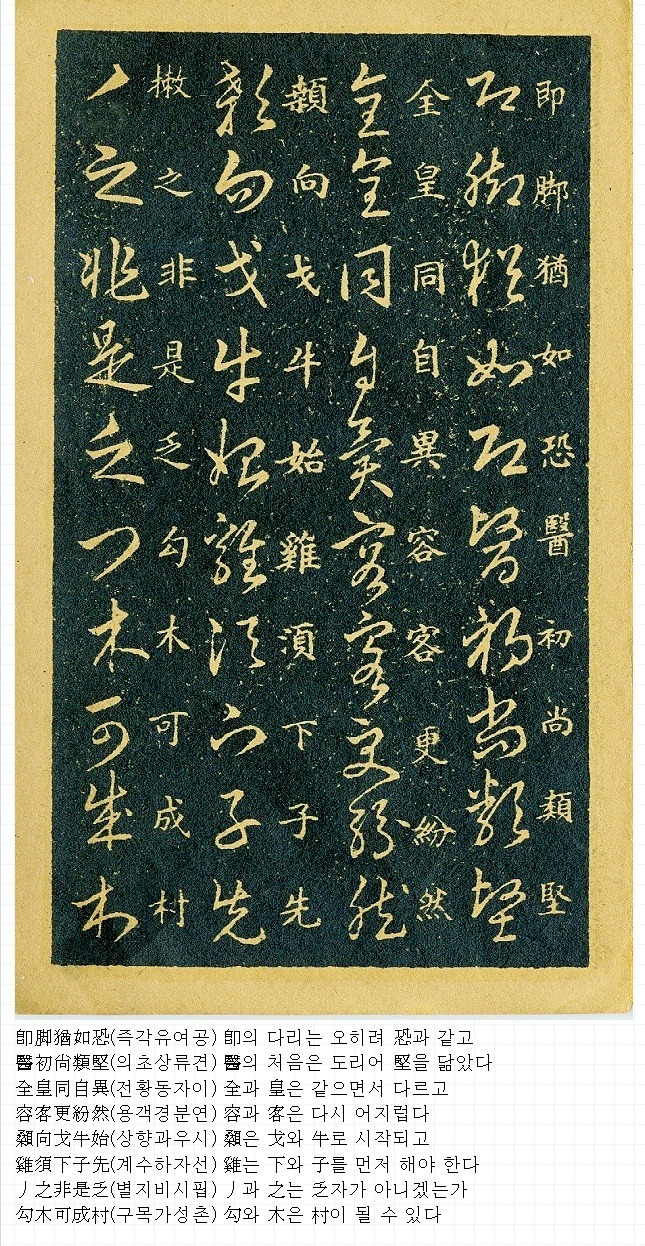 即脚猶如恐醫初尚類堅
即脚猶如恐醫初尚類堅
全皇同自異容客更紛然
全皇同自異容客更紛然
顙向戈牛始雞湏下子先
顙向戈牛始雞須下子先
撇之非是乏勾木可成村
丿之非是乏勾木可成村
卽脚猶如恐(즉각유여공) 卽의 다리는 오히려 恐과 같고
醫初尙類堅(의초상류견) 醫의 처음은 도리어 堅을 닮았다
全皇同自異(전황동자이) 全과 皇은 같으면서 다르고
容客更紛然(용객경분연) 容과 客은 다시 어지럽다
顙向戈牛始(상향과우시) 顙은 戈와 牛로 시작되고
雞須下子先(계수하자선) 雞는 下와 子를 먼저 해야 한다
丿之非是乏(별지비시핍) 丿과 之는 乏자가 아니겠는가
勾木可成村(구목가성촌) 勾와 木은 村이 될 수 있다